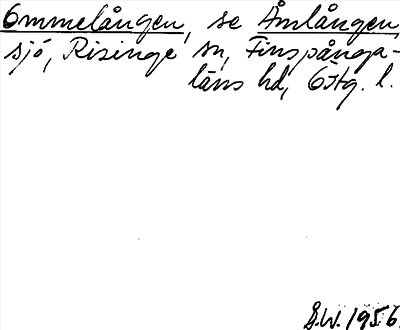 Ommelången, se Åmlången,
sjö, Risinge sn, Finspånga-
läns hd, Östg. l.
G.W. 1956.